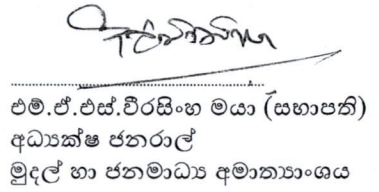 එම්.ඒ.එස්.වීරසිංහ මයා (සභාපති)
අධ්‍යක්ෂ ජනරාල්
මුදල් හා ජනමාධ්‍ය අමාත්‍යාංශය